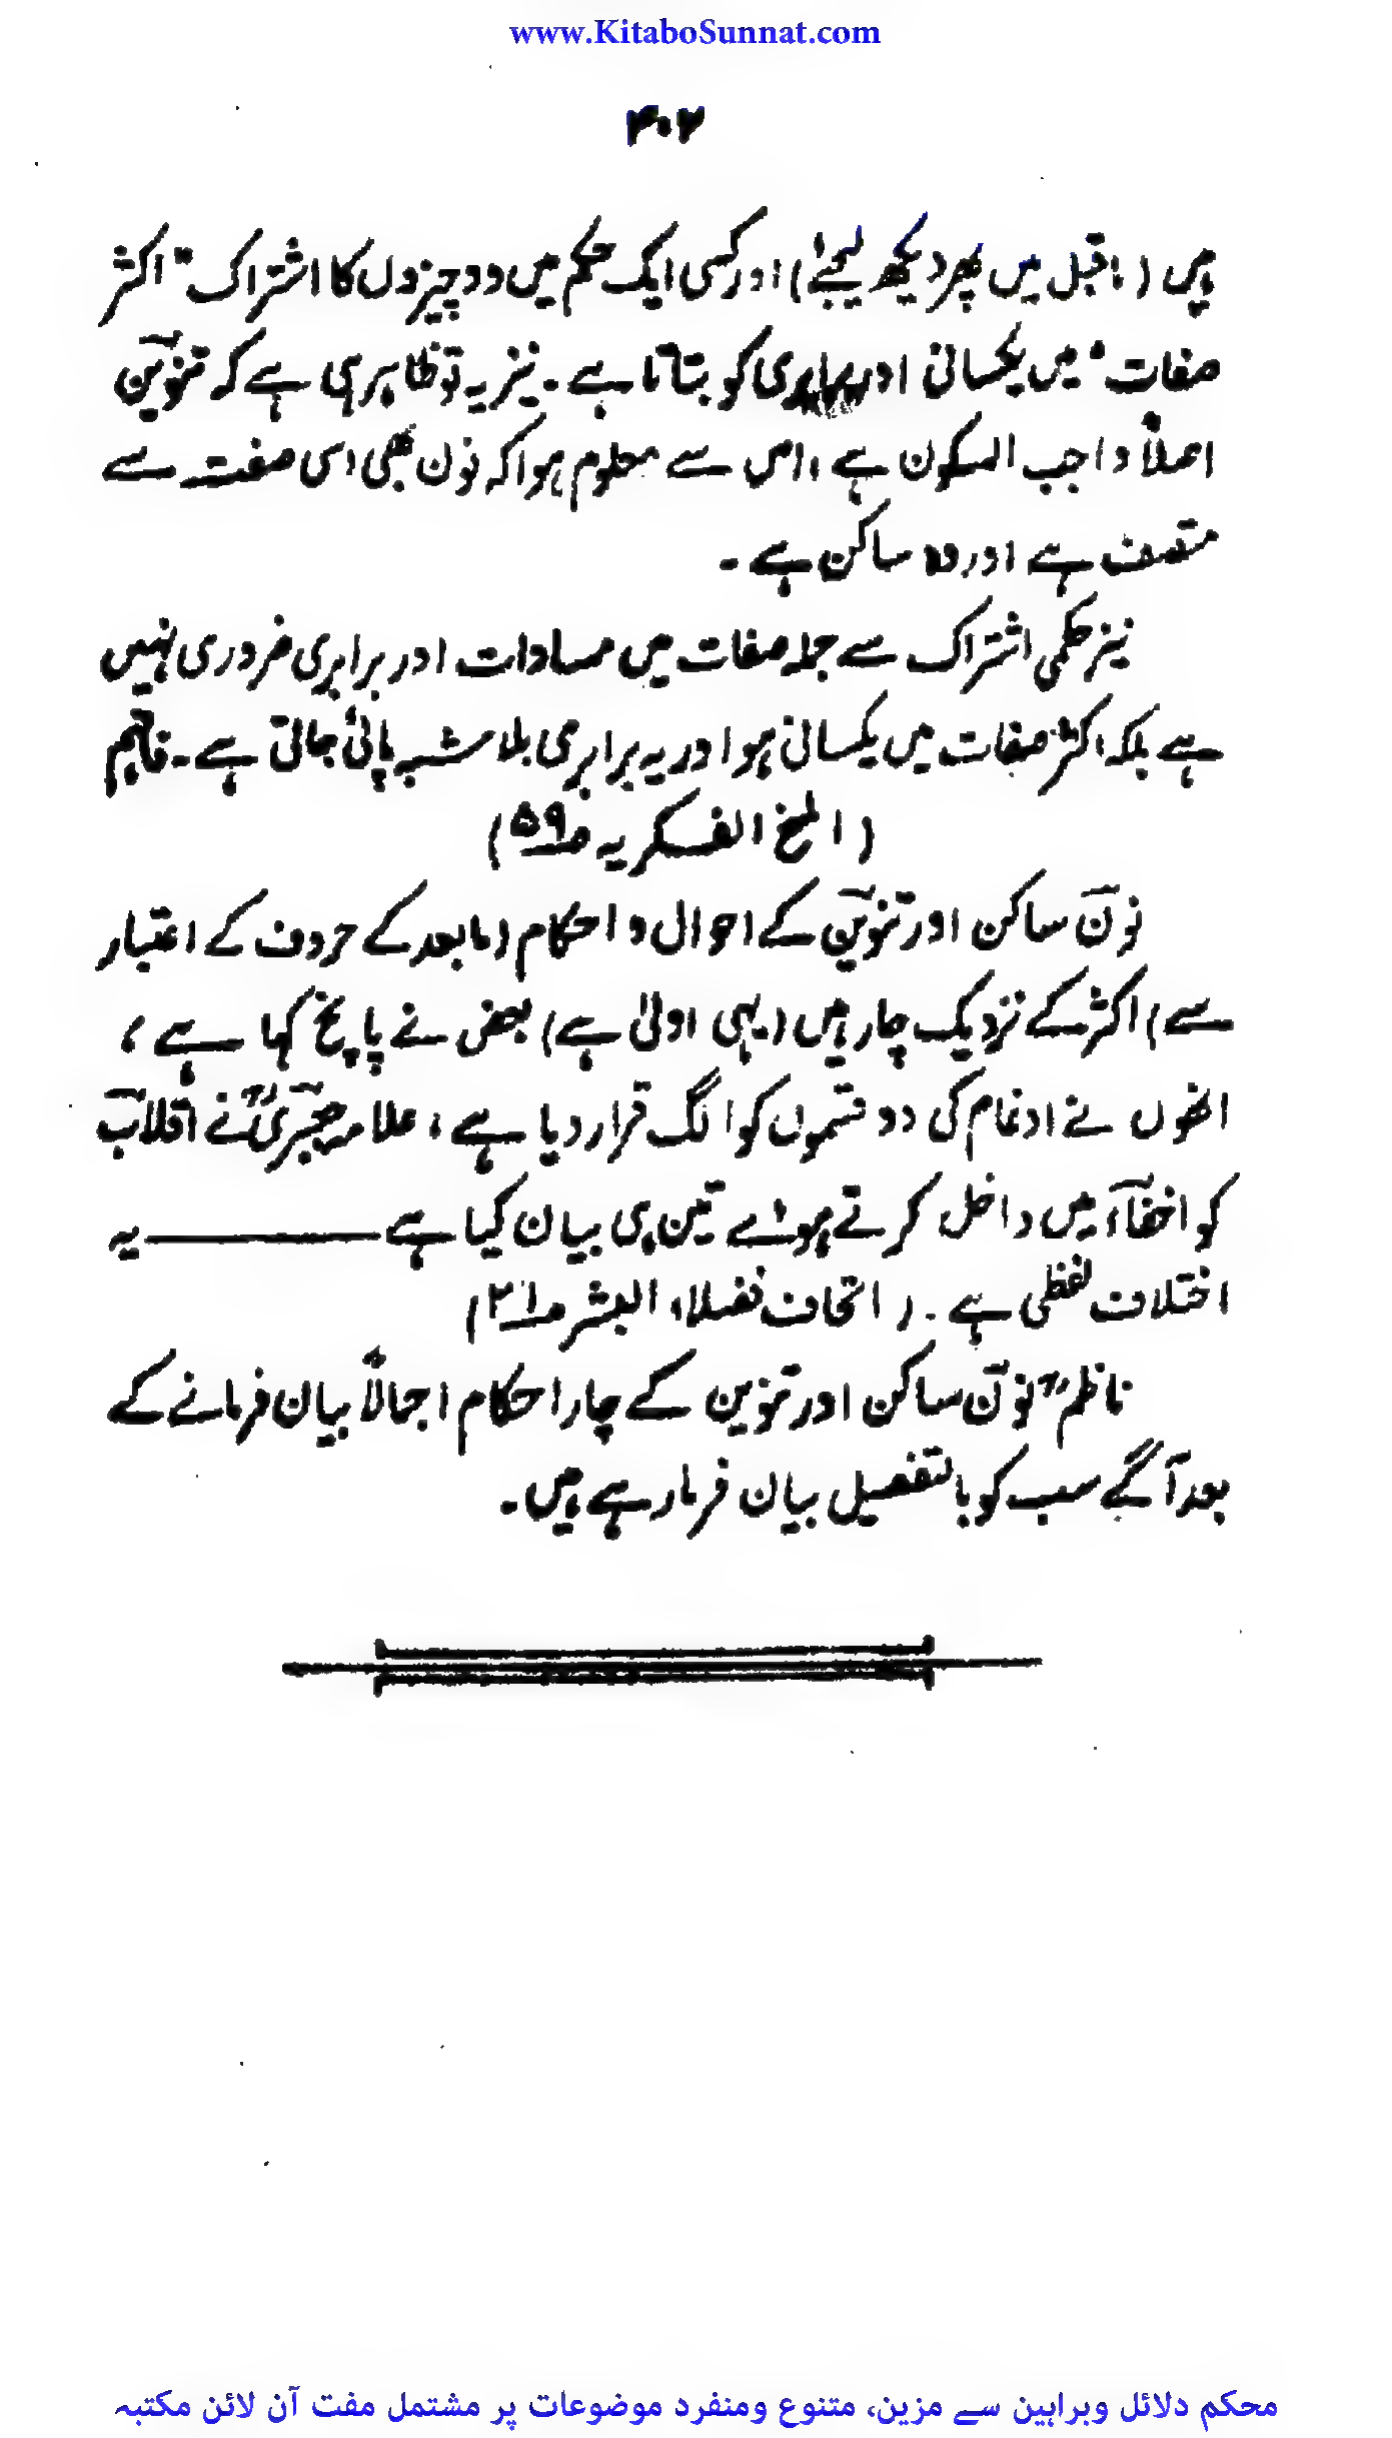 www.KitaboSunnat.com
۳۰۲
ہیں (ماقبل میں پھر دیکھ لیجئے) اور کسی ایک حکم میں دو چیزوں کا اشتراک "اکثر
صفات" میں یکسانی اور برابری کو بتاتا ہے۔ نیز یہ تو ظاہر ہی ہے کہ تنوین
اصلاً واجب السکون ہے، اس سے معلوم ہوا کہ نون بھی اسی صفت سے
متصف ہے اور وہ ساکن ہے۔
نیز حکمی اشتراک سے جملہ صفات میں مساوات اور برابری ضروری نہیں
ہے بلکہ اکثر صفات میں یکسانی ہو اور یہ برابری بلا شبہ پائی جاتی ہے۔ فافہم
(المنح الفکریہ ص۵۹)
نون ساکن اور تنوین کے احوال و احکام (مابعد کے حروف کے اعتبار
سے) اکثر کے نزدیک چار ہیں (یہی اولیٰ ہے) بعض نے پانچ کہا ہے،
انھوں نے ادغام کی دو قسموں کو الگ قرار دیا ہے، علامہ جعبریؒ نے اقلاب
کو اخفاء میں داخل کرتے ہوئے تین ہی بیان کیا ہے ــــــــــ یہ
اختلاف لفظی ہے۔ (اتحاف فضلاء البشر ص۲۱)
ناظمؒ نون ساکن اور تنوین کے چار احکام اجمالاً بیان فرمانے کے
بعد آگے سب کو بالتفصیل بیان فرما رہے ہیں۔
محکم دلائل وبراہین سے مزین، متنوع ومنفرد موضوعات پر مشتمل مفت آن لائن مکتبہ